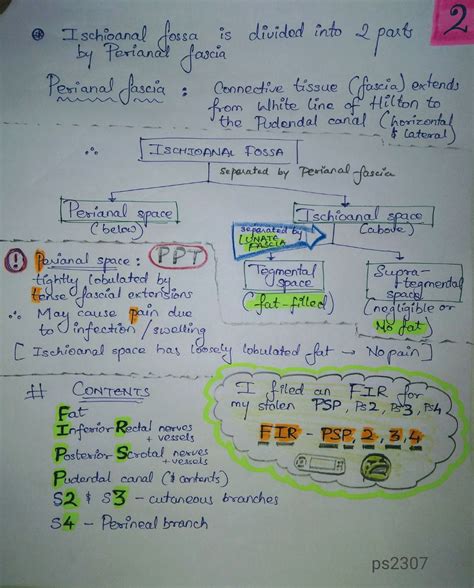 2
Ischioanal fossa is divided into 2 parts
by Perianal fascia
Perianal fascia : Connective tissue (fascia) extends
from White line of Hilton to
the Pudendal canal (horizontal
& lateral)
∴ ISCHIOANAL FOSSA
separated by perianal-fascia
Perianal space
(below)
Ischioanal space
(above)
separated by
LUNATE
FASCIA
Tegmental
space
(fat-filled)
Supra-
tegmental
space
(negligible or
No fat)
! Perianal space : PPT
tightly lobulated by
tense fascial extensions
∴ May cause pain due
to infection / swelling
[ Ischioanal space has loosely lobulated fat → No pain ]
# CONTENTS
Fat
Inferior Rectal nerves
+ vessels
Posterior Scrotal nerves
+ vessels
Pudendal canal (& contents)
S2 & S3 - cutaneous branches
S4 - Perineal branch
I filed an FIR for
my stolen PSP, PS2, PS3, PS4
FIR - PSP, 2, 3, 4
ps2307